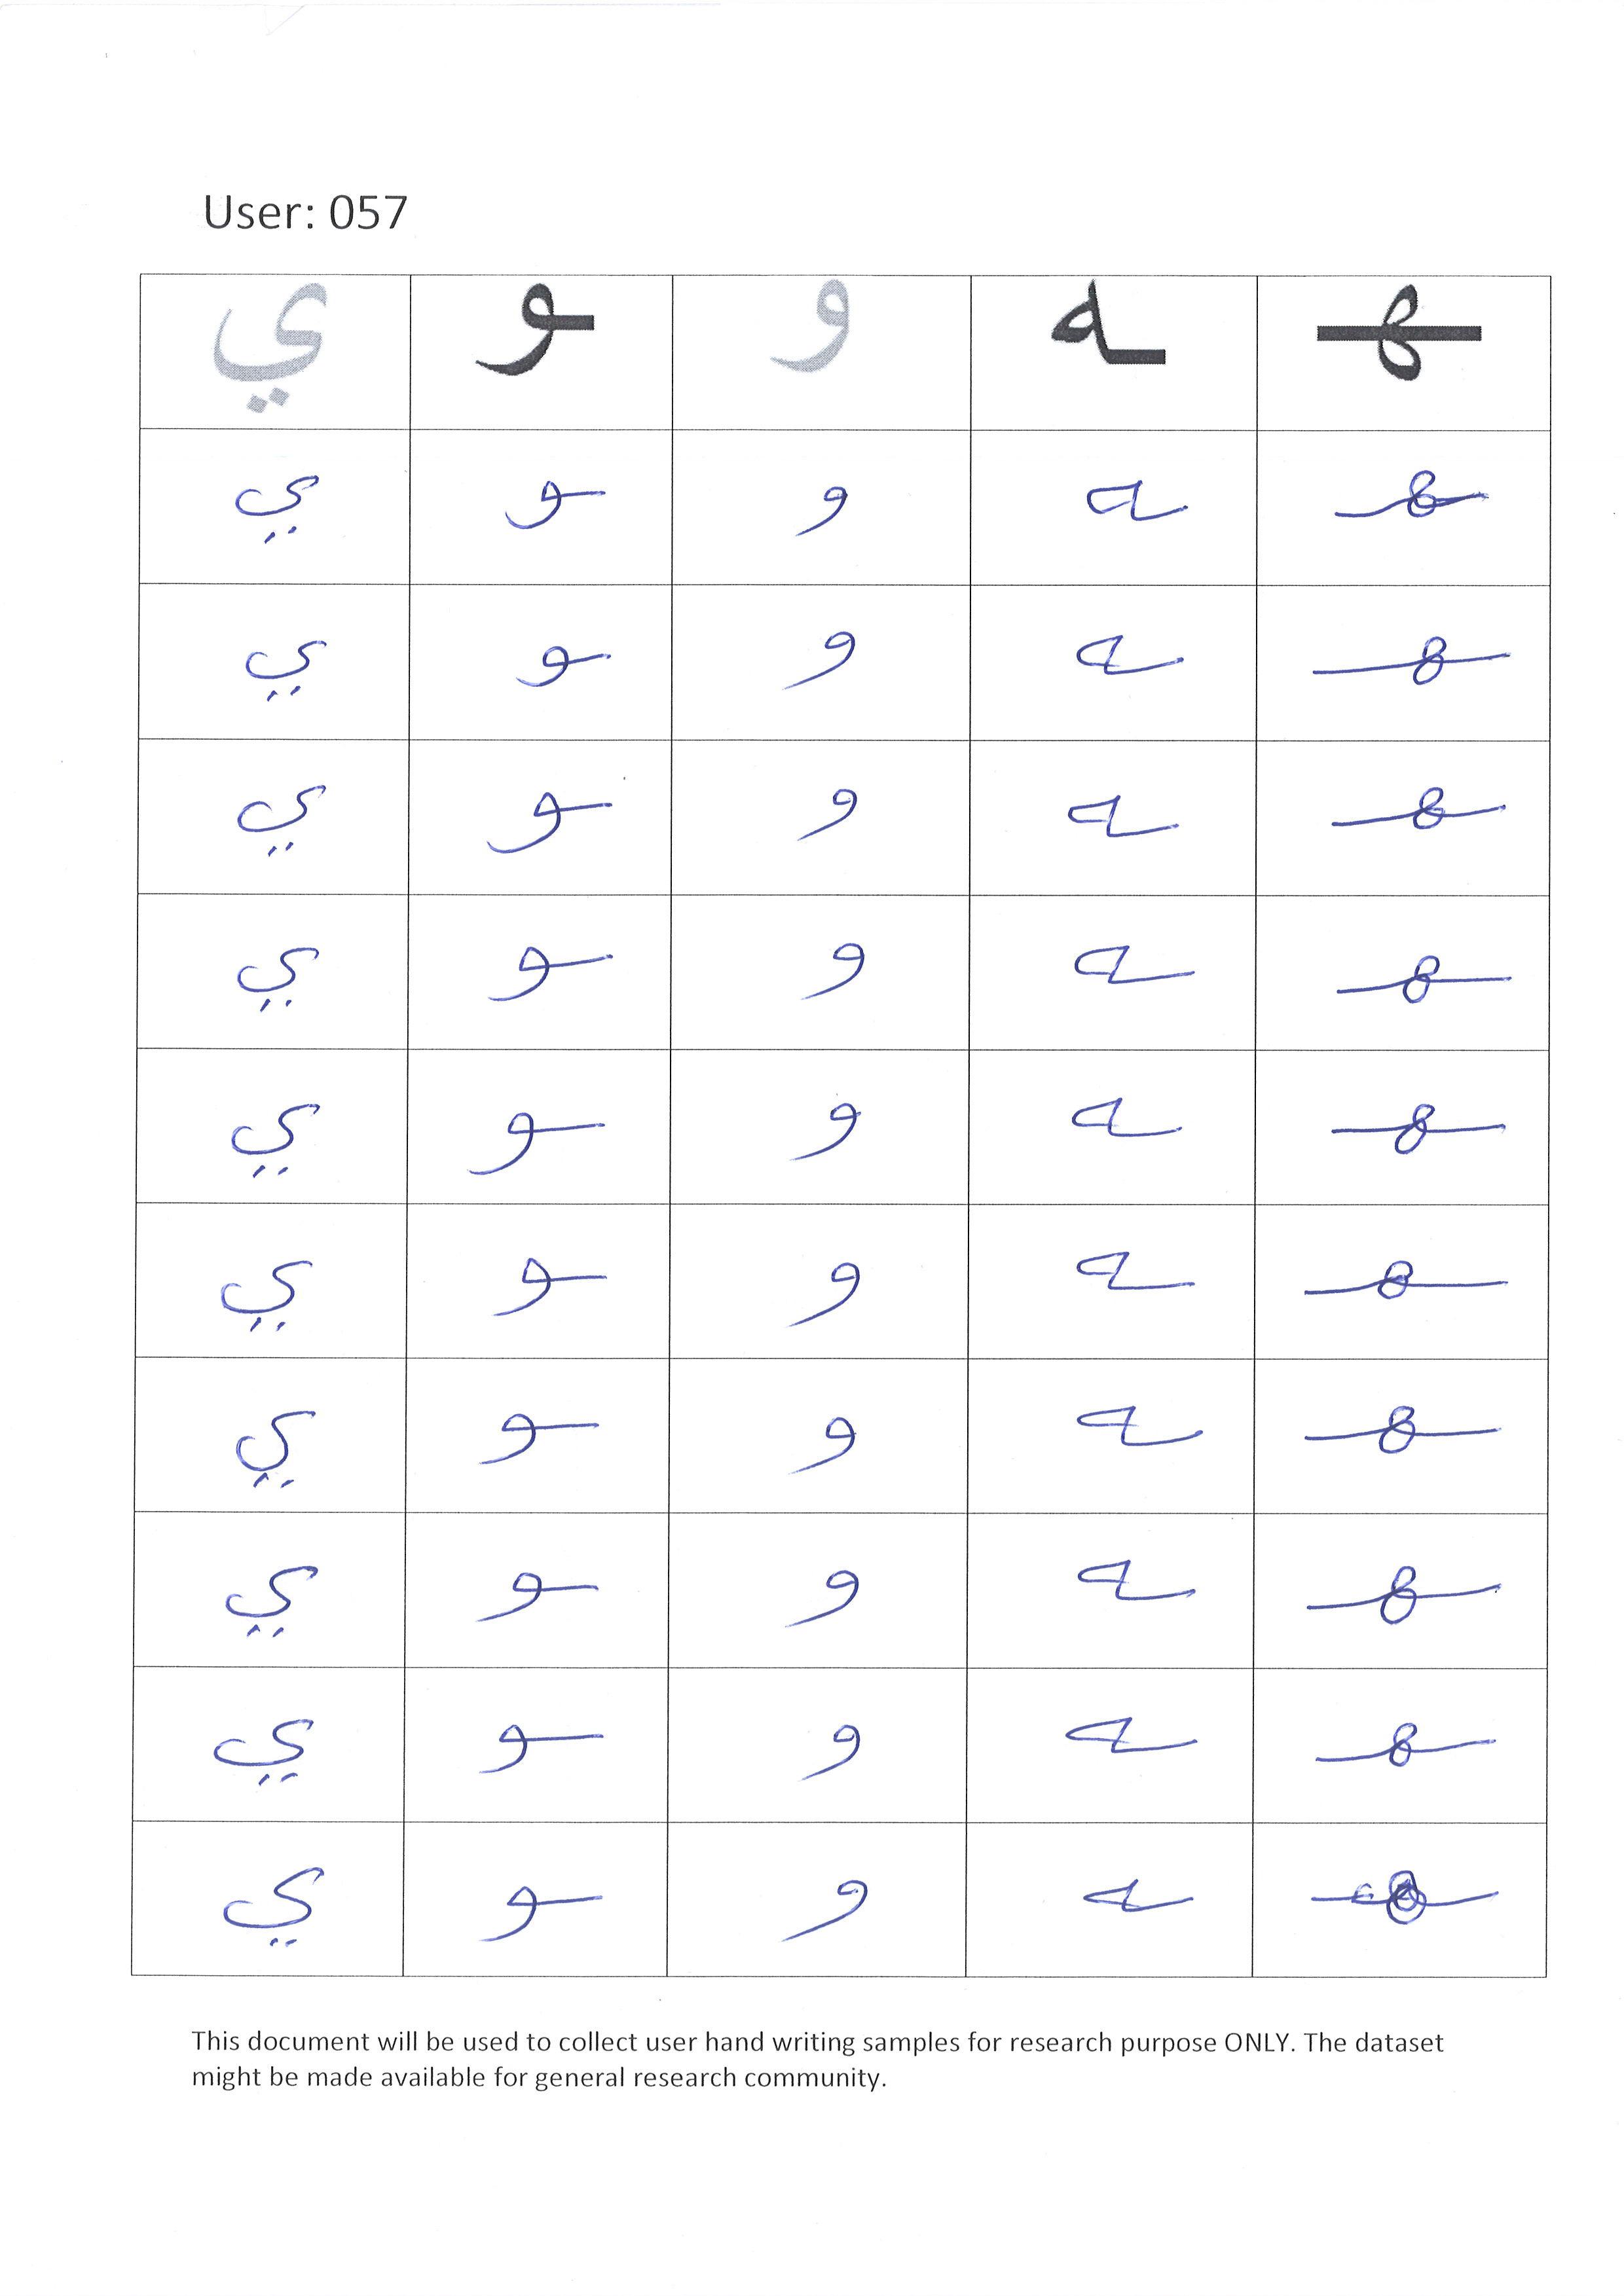 User: 057
ي ـو و ـه ـهـ
ي ـو و ـه ـهـ
ي ـو و ـه ـهـ
ي ـو و ـه ـهـ
ي ـو و ـه ـهـ
ي ـو و ـه ـهـ
ي ـو و ـه ـهـ
ي ـو و ـه ـهـ
ي ـو و ـه ـهـ
ي ـو و ـه ـهـ
ي ـو و ـه ـهـ
This document will be used to collect user hand writing samples for research purpose ONLY. The dataset
might be made available for general research community.